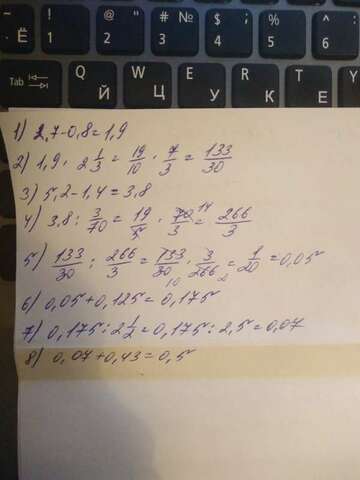 Ё ! 1 @ " 2 # № 3 $ ; 4 % 5
Tab Q Й W Ц E У R К T Е
1) 2,7-0,8=1,9
2) 1,9 · 2 1/3 = 19/10 · 7/3 = 133/30
3) 5,2-1,4=3,8
4) 3.8 : 3/70 = 19/5 · 70 14/3 = 266/3
5) 133/30 : 266/3 = 133/30 10 · 3/266 2 = 1/20 = 0,05
6) 0,05+0,125=0,175
7) 0,175 : 2 1/2 = 0,175 : 2,5 = 0,07
8) 0,07+0,43=0,5